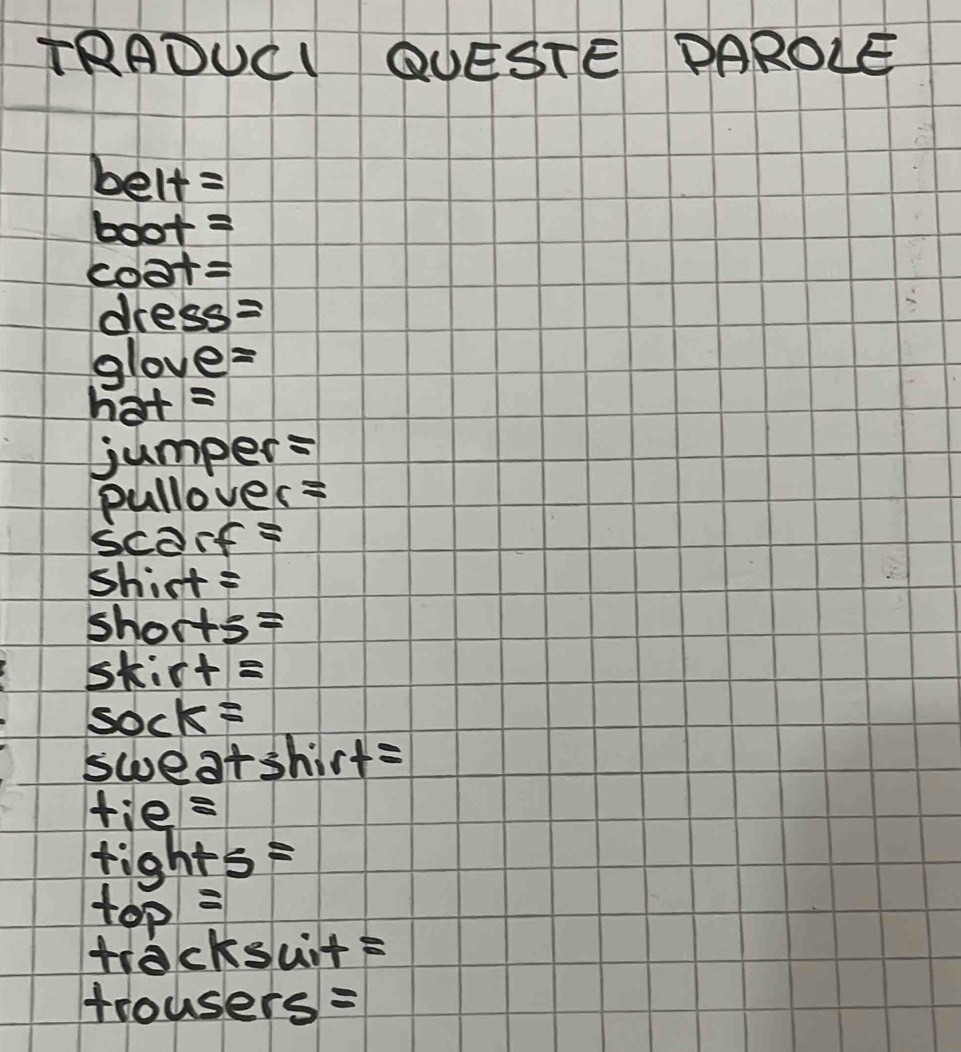 TRADUCI QUESTE PAROLE
belt =
boot =
coat =
dress =
glove =
hat =
jumper =
pullover =
scarf =
shirt =
shorts =
skirt =
sock =
sweatshirt =
tie =
tights =
top =
tracksuit =
trousers =